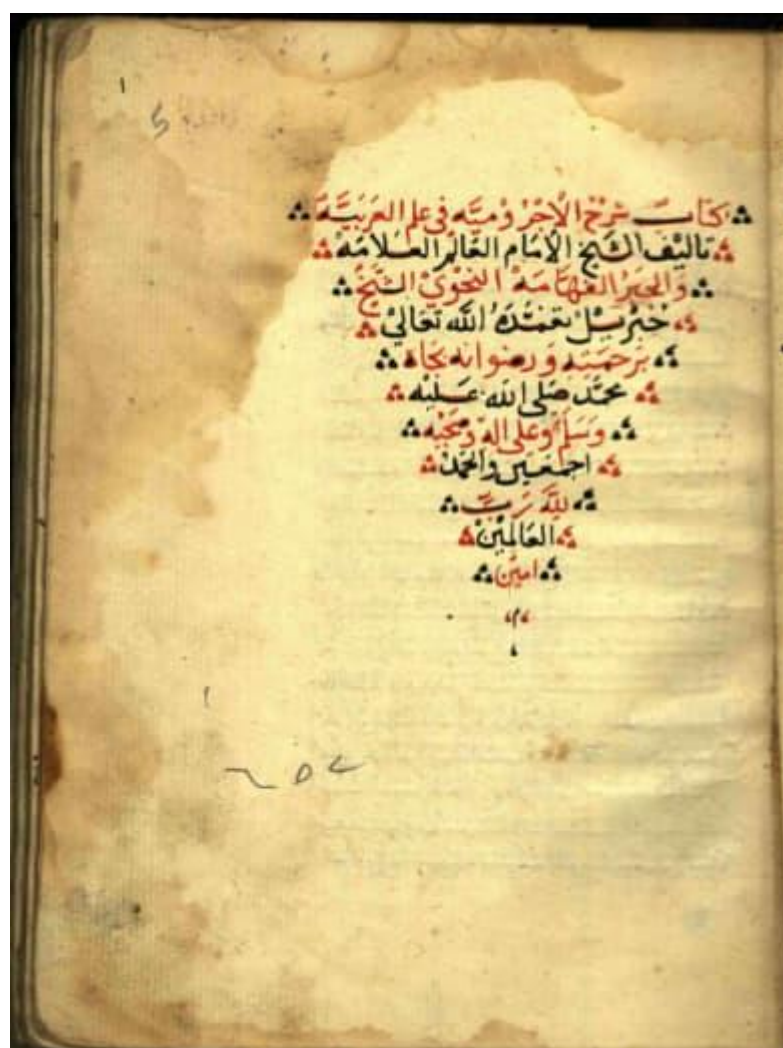 كتاب شرح الاجروميه في علم العربيه
تاليف الشيخ الامام العالم العلامه
والحبر الفهامه النحوي الشيخ
جبريل تغمده الله تعالي
برحمته ورضوانه بجاه
محمد صلى الله عليه
وسلم وعلى اله وصحبه
اجمعين والحمد
لله رب
العالمين
امين
م